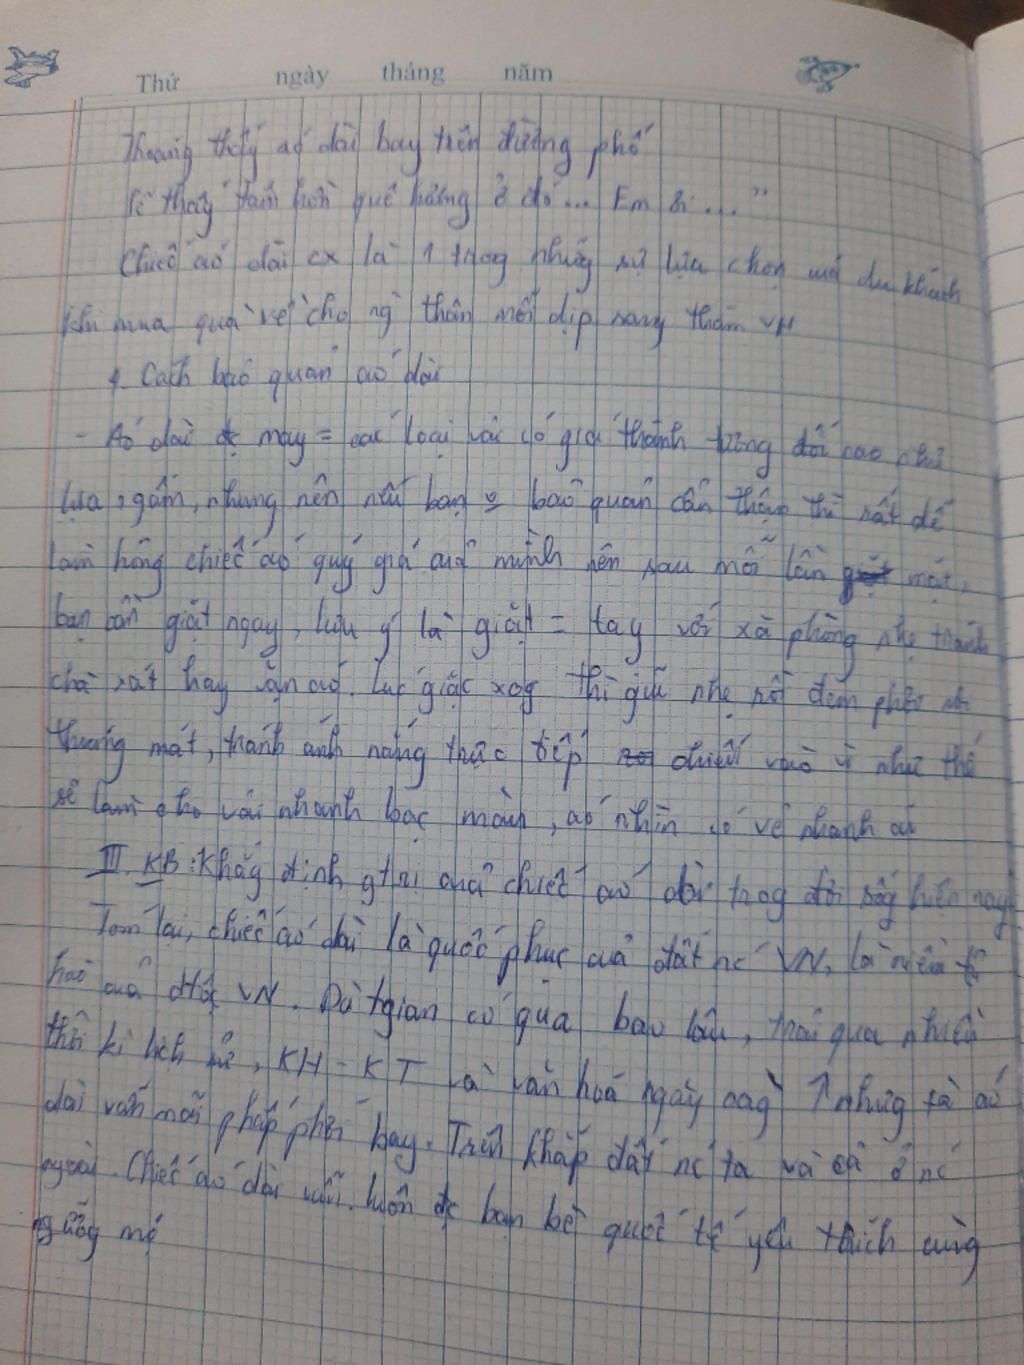 Thứ ngày tháng năm
Thoáng thấy áo dài bay trên đường phố
Sẽ thấy tâm hồn quê hương ở đó... Em ơi..."
Chiếc áo dài cx là 1 trog những sự lựa chọn của du khách
khi mua quà về cho ng thân mỗi dịp sang thăm VN
4. Cách bảo quản áo dài
- Áo dài đc may = các loại vải có giá thành tương đối cao như
lụa, gấm, nhung nên nếu bạn bảo quản cẩn thận thì rất dễ
làm hỏng chiếc áo quý giá của mình nên sau mỗi lần mặt,
bạn cần giặt ngay, lưu ý là giặt = tay với xà phòng nhẹ tránh
chà xát hay vặn áo. Lúc giặc xog thì giũ nhẹ rồi đem phơi nơi
thoáng mát, tránh ánh nắng trực tiếp chiếu vào vì như thế
sẽ làm cho vải nhanh bạc màu, áo nhìn có vẻ nhanh cũ
III. KB: Khẳg định gtrị của chiếc áo dài trog đời sốg hiện nay
Tóm lại, chiếc áo dài là quốc phục của đất nc VN, là niềm tự
hào của dtộc VN. Dù tgian có qua bao lâu, trải qua nhiều
thời kì lịch sử, KH - KT và văn hoá ngày càg ↑ nhưng tà áo
dài vẫn mãi phấp phới bay. Trên khắp đất nc ta và cả ở nc
ngoài. Chiếc áo dài vẫn luôn đc bạn bè quốc tế yêu thích cùng
ngưỡg mộ